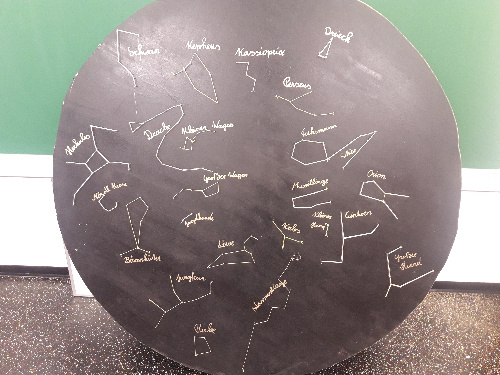 Schwan
Kepheus
Kassiopeia
Dreieck
Perseus
Herkules
Drache
Kleiner Wagen
Fuhrmann
Stier
Großer Wagen
Orion
Bärenhüter
Löwe
Krebs
Kleiner
Hund
Einhorn
Großer
Hund
Jungfrau
Wasserschlange
Becher